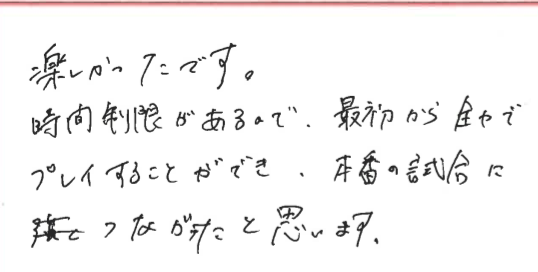 楽しかったです。
時間制限があるので、最初から全力で
プレイすることができ、本番の試合に
つながったと思います。